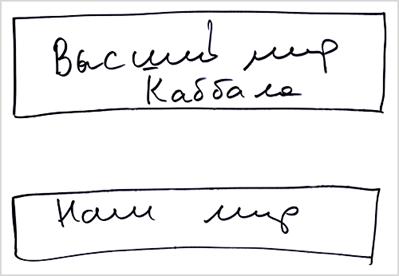 Высший мир
Каббала
Наш мир